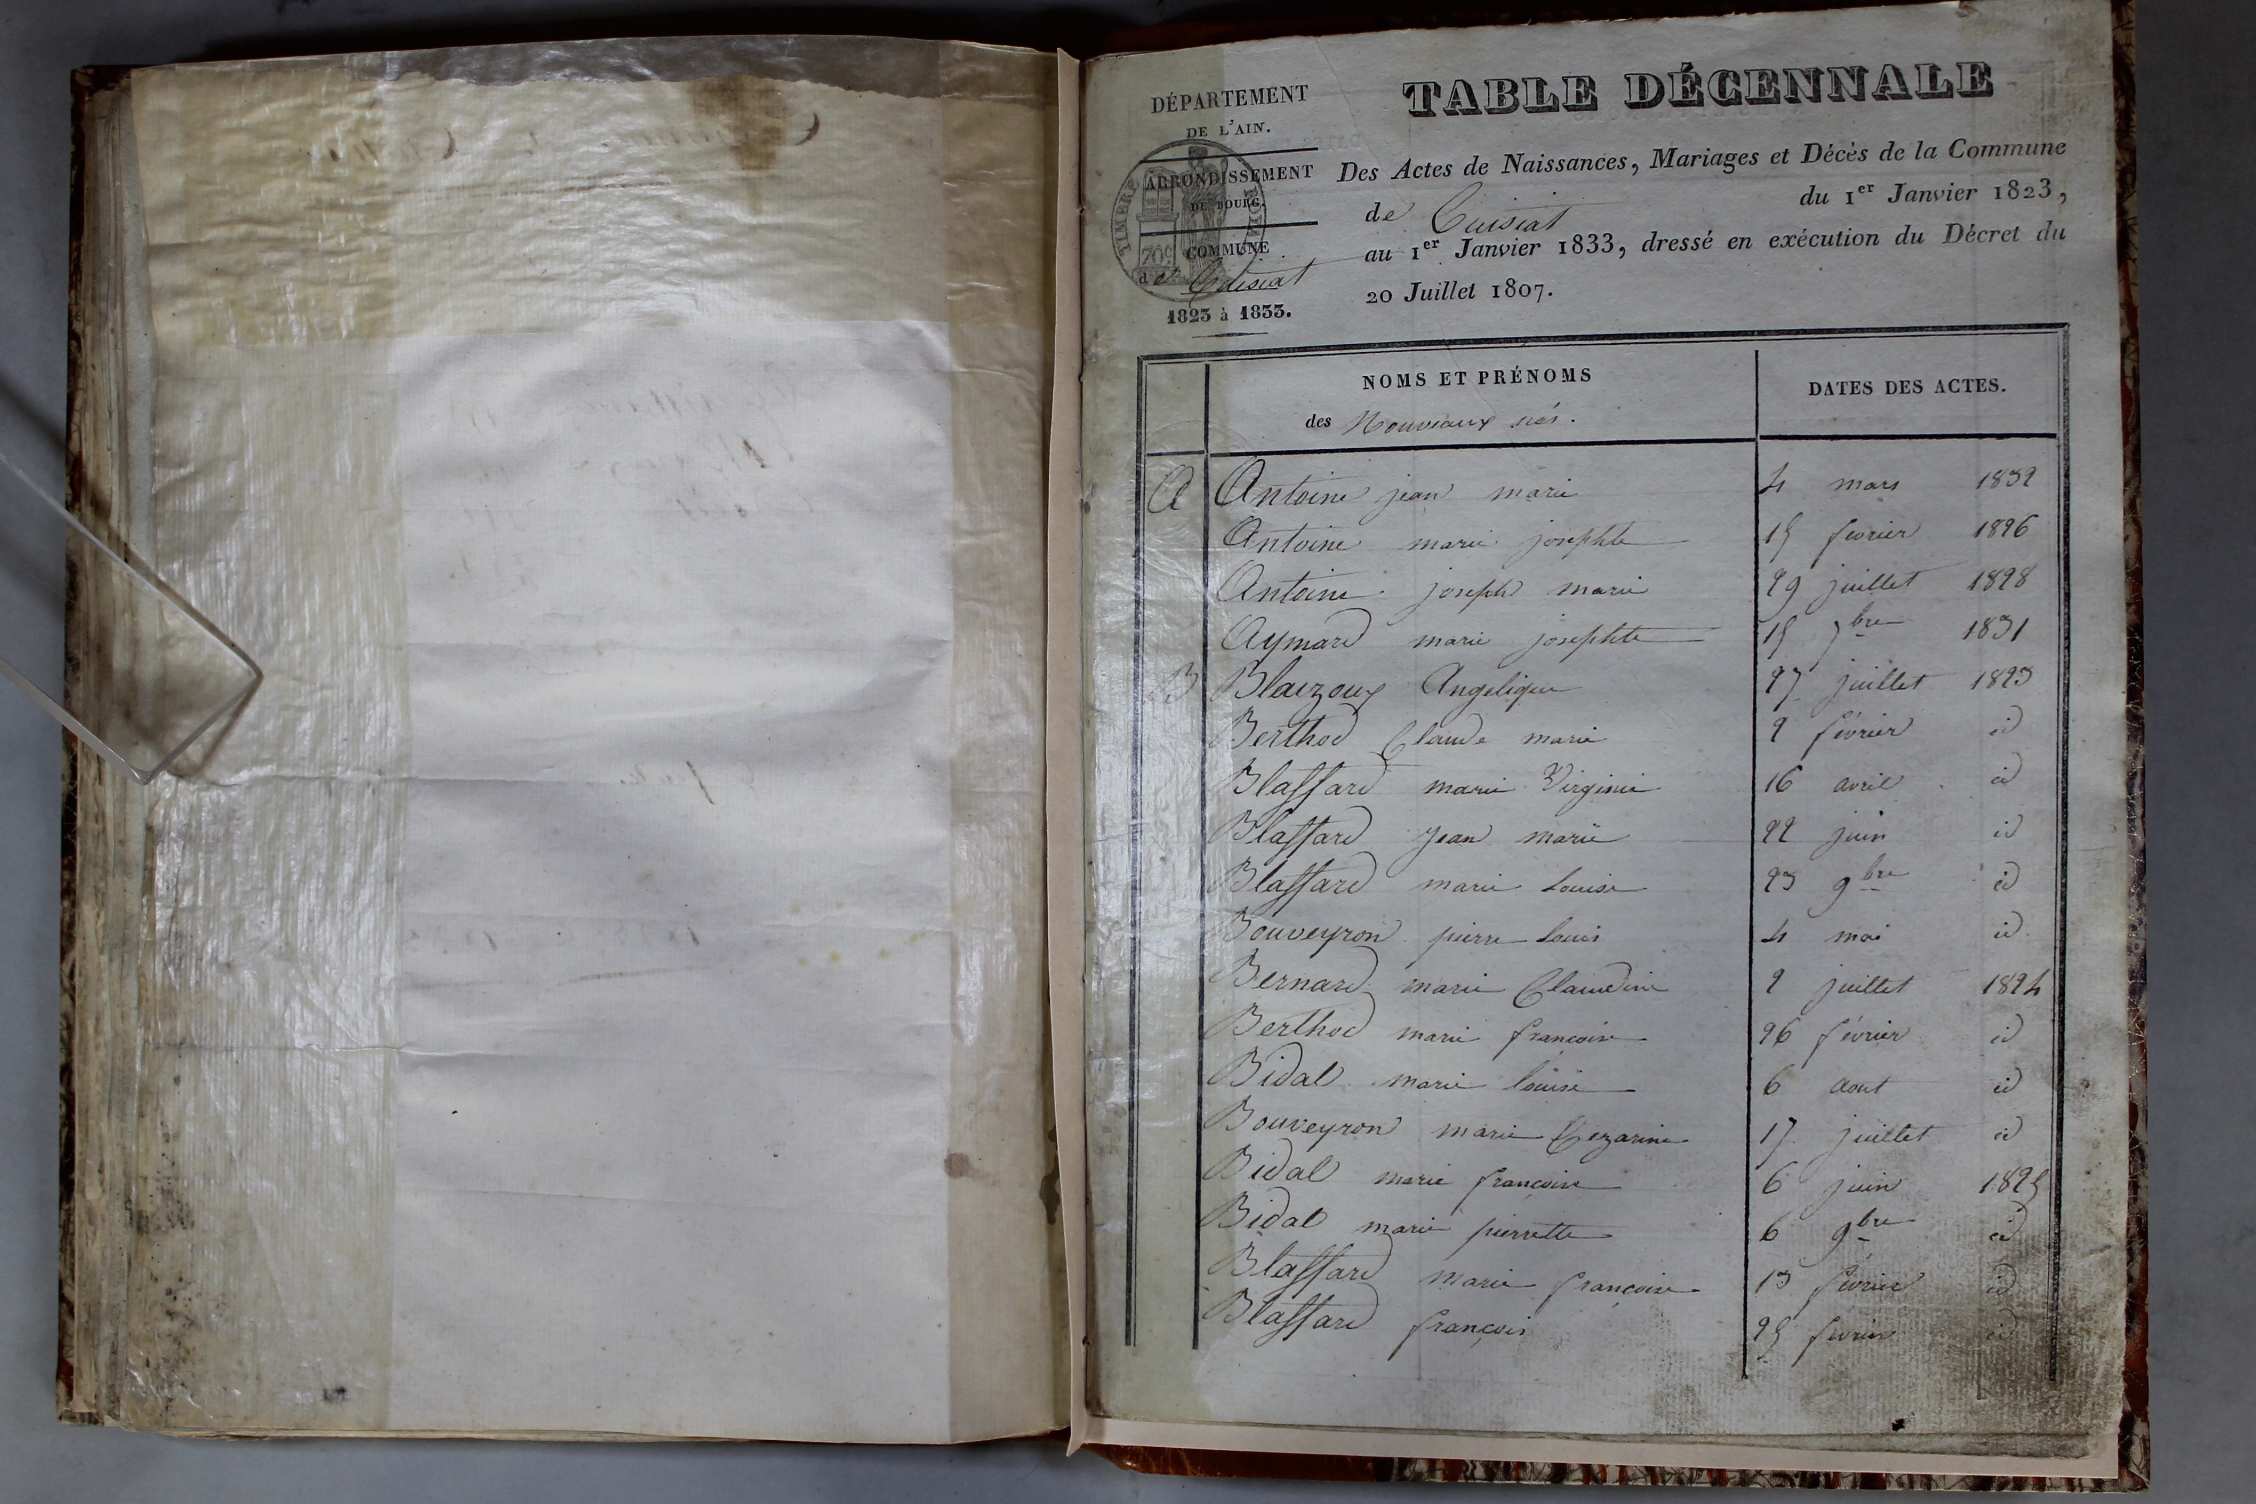 DÉPARTEMENT
DE L'AIN.
ARRONDISSEMENT
DE BOURG.
COMMUNE
de Cuisiat
1823 à 1833.
TIMBRE
70c
TABLE DÉCENNALE
Des Actes de Naissances, Mariages et Décès de la Commune
de Cuisiat du 1er Janvier 1823,
au 1er Janvier 1833, dressé en exécution du Décret du
20 Juillet 1807.
NOMS ET PRÉNOMS DATES DES ACTES.
des Nouveaux nés.
A Antoine jean marie 4 mars 1832
Antoine marie josephte 15 fevrier 1826
Antoine joseph marie 29 juillet 1828
Aymard marie josephte 15 7bre 1831
B Blaizoux Angelique 27 juillet 1823
Berthod Claude marie 2 février id
Blaffard marie Virginie 16 avril id
Blaffard jean marie 22 juin id
Blaffard marie Louise 23 9bre id
Bouveyron pierre louis 4 mai id
Bernard marie Claudine 2 juillet 1824
Berthod marie francoise 26 février id
Bidal marie louise 6 aout id
Bouveyron marie Cezarine 17 juillet id
Bidal marie francoise 6 juin 1825
Bidal marie pierrette 6 9bre id
Blaffard marie françoise 13 fevrier id
Blaffard françois 25 fevrier id